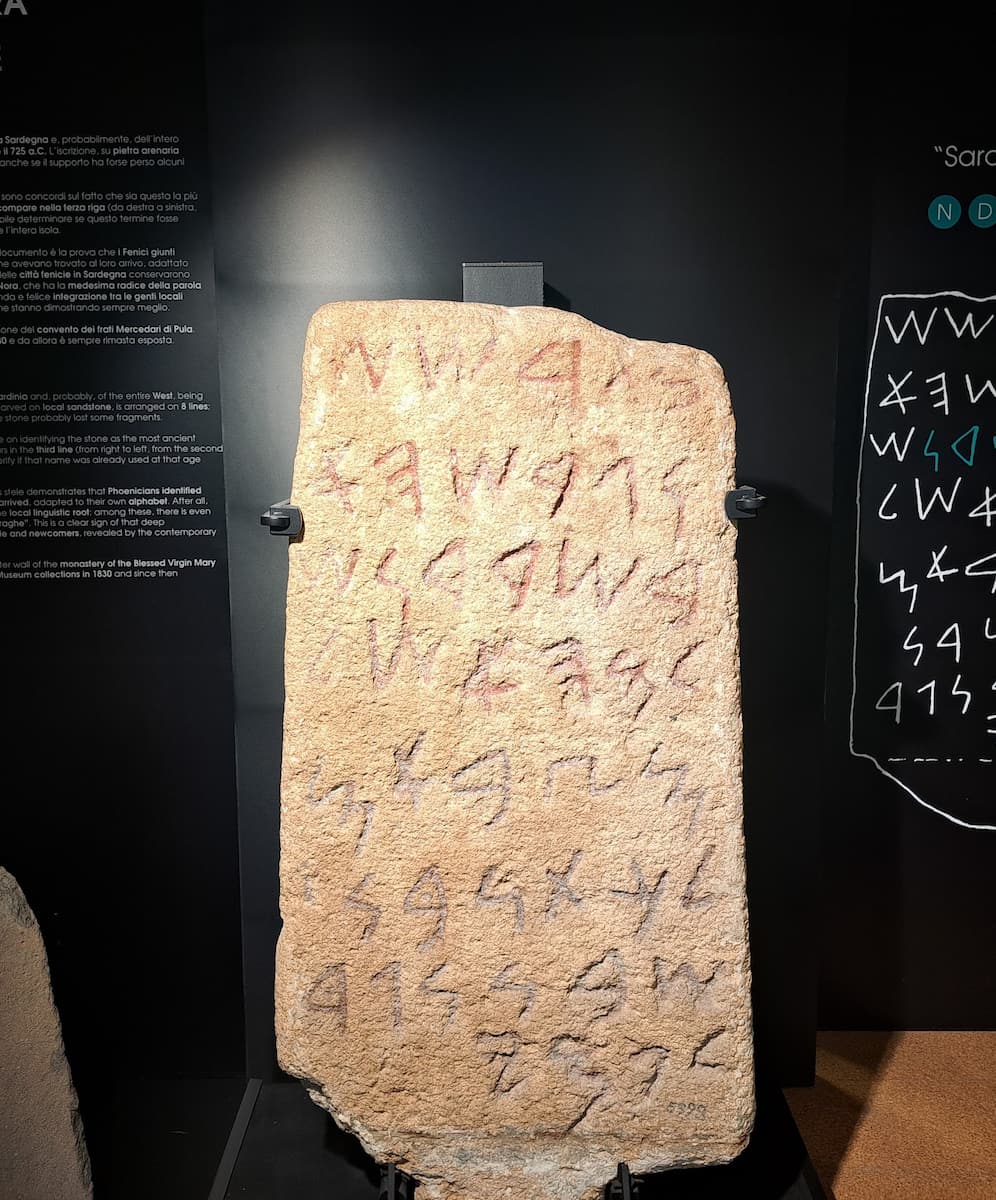 a Sardegna e, probabilmente, dell'intero
il 725 a.C. L'iscrizione, su pietra arenaria
anche se il supporto ha forse perso alcuni
sono concordi sul fatto che sia questa la più
compare nella terza riga (da destra a sinistra,
determinare se questo termine fosse
e l'intera isola.
documento è la prova che i Fenici giunti
avevano trovato al loro arrivo, adattato
delle città fenicie in Sardegna conservarono
Nora, che ha la medesima radice della parola
e felice integrazione tra le genti locali
stanno dimostrando sempre meglio.
del convento dei frati Mercedari di Pula.
e da allora è sempre rimasta esposta.
and, probably, of the entire West, being
carved on local sandstone, is arranged on 8 lines;
stone probably lost some fragments.
on identifying the stone as the most ancient
in the third line (from right to left, from the second
if that name was already used at that age
stele demonstrates that Phoenicians identified
arrived, adapted to their own alphabet. After all,
local linguistic root: among these, there is even
This is a clear sign of that deep
and newcomers, revealed by the contemporary
wall of the monastery of the Blessed Virgin Mary
Museum collections in 1830 and since then
𐤁𐤕𐤓𐤔𐤔
𐤍𐤂𐤓𐤔𐤄𐤀
𐤁𐤔𐤓𐤃𐤍𐤔
𐤋𐤌𐤄𐤀𐤔𐤋
𐤌𐤑𐤁𐤀𐤌
𐤋𐤊𐤕𐤍𐤁𐤍
𐤔𐤁𐤍𐤍𐤂𐤃
𐤋𐤐𐤌𐤉
N D